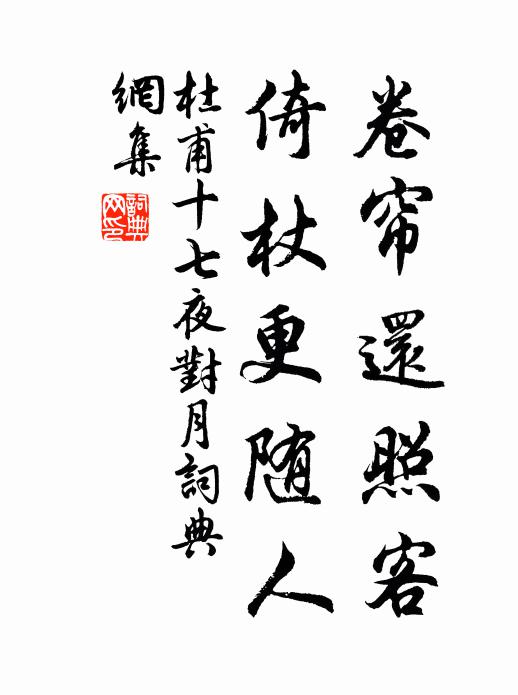 卷帘還照客
倚杖更随人
杜甫十七夜對月詞典
網集
詞典网印